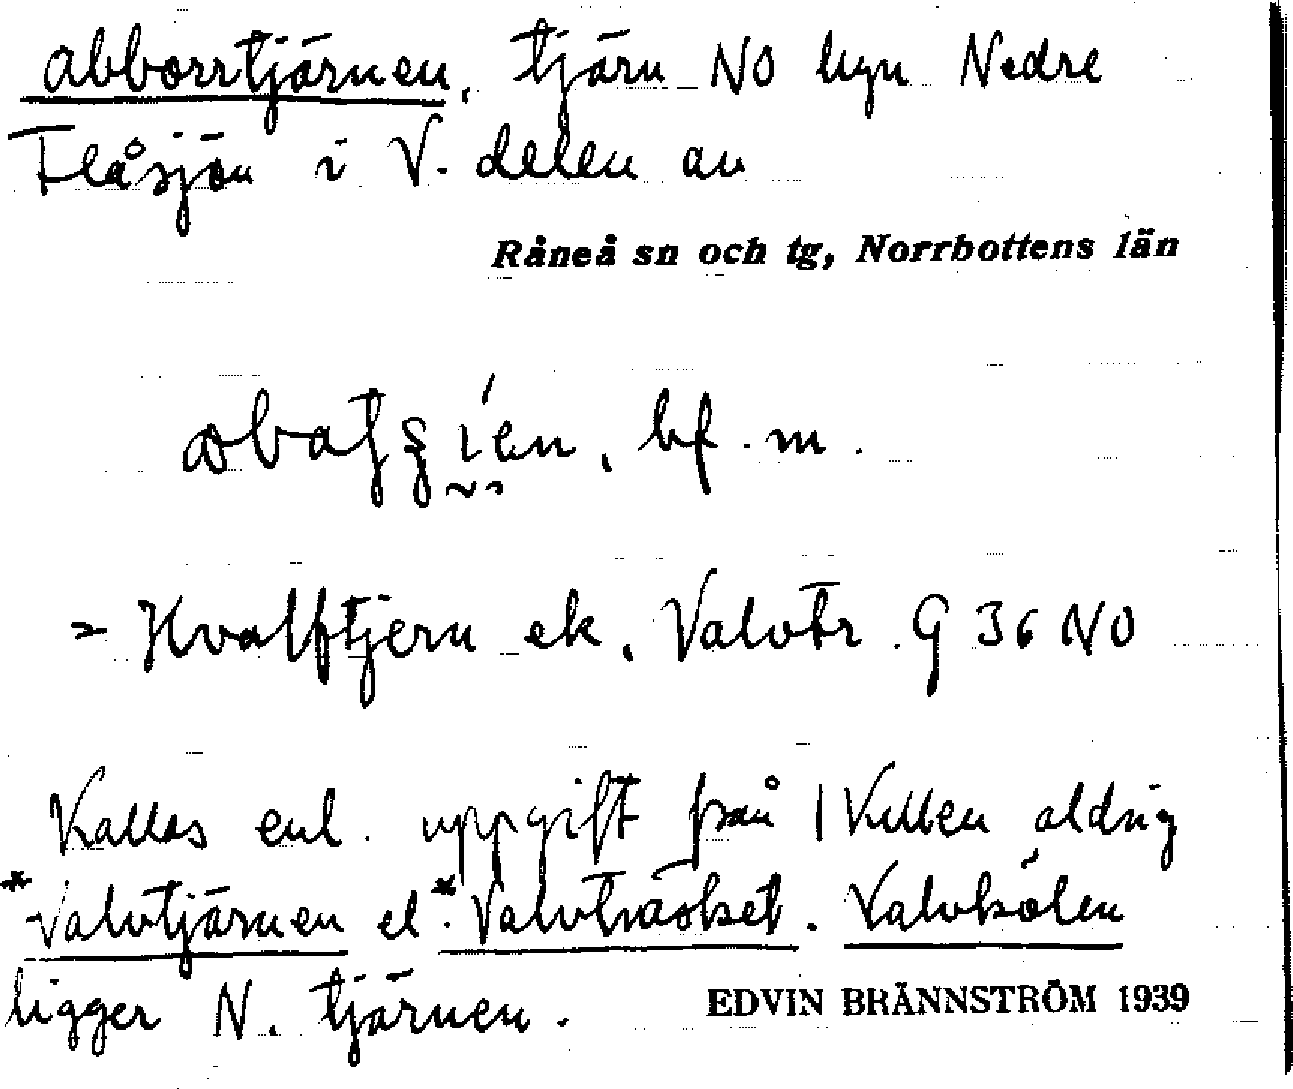 Abborrtjärnen, tjärn NO hyn Nedre
Flåsjön i V. delen av
Råneå sn och tg, Norrbottens län
bf. m.
= Hvalftjern ek, Valvtr. G 36 NO
Kallas enl. uppgift från Kvillen aldrig
*Valvtjärnen el. *Valvträsket. Valvkölen
ligger N. tjärnen.
EDVIN BRÄNNSTRÖM 1939